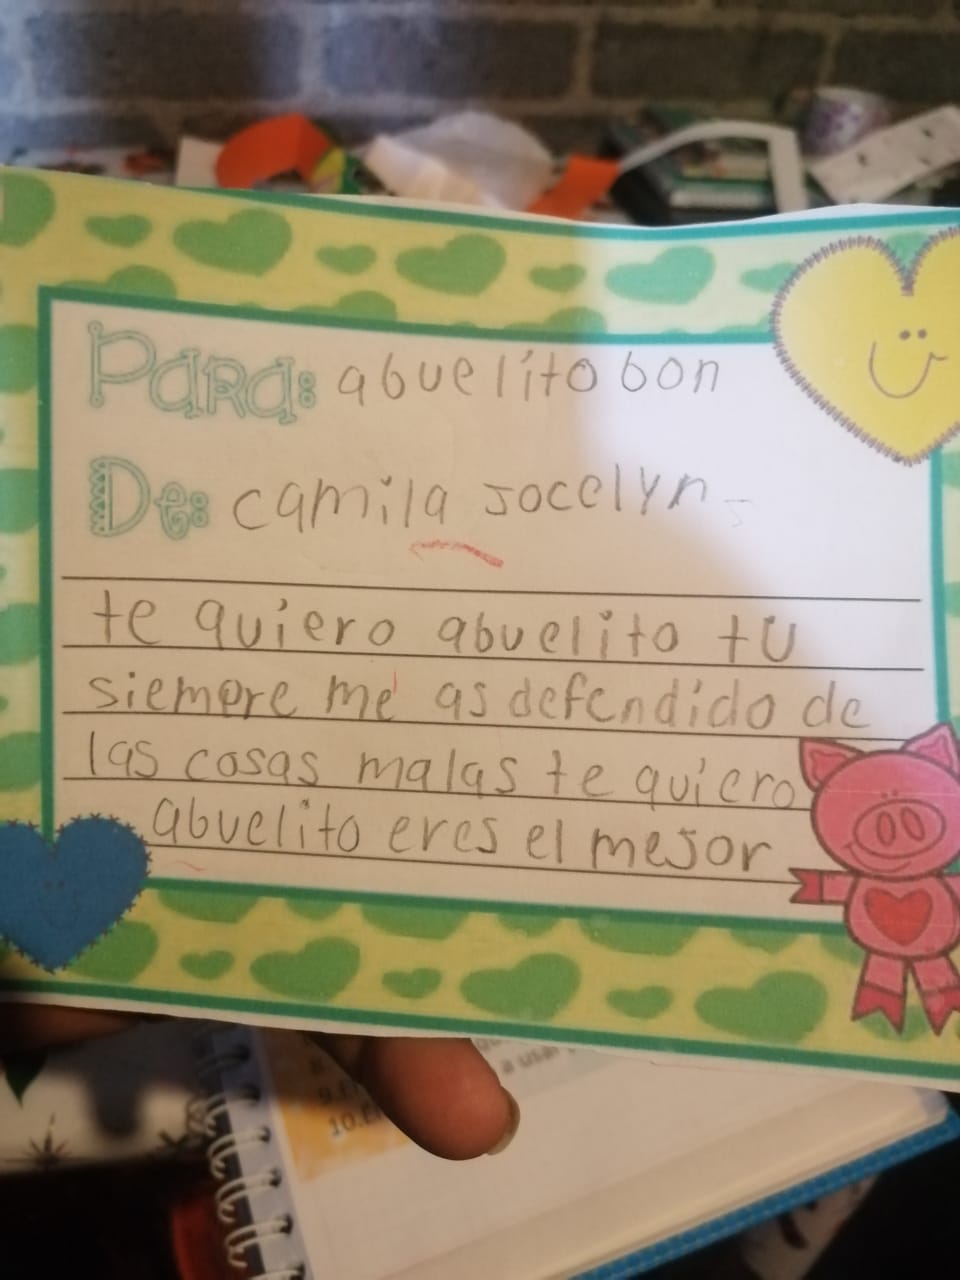 Para: abuelito bon
De: camila Jocelyn
te quiero abuelito tu
siempre me as defendido de
las cosas malas te quiero
abuelito eres el mejor
a usar
10.